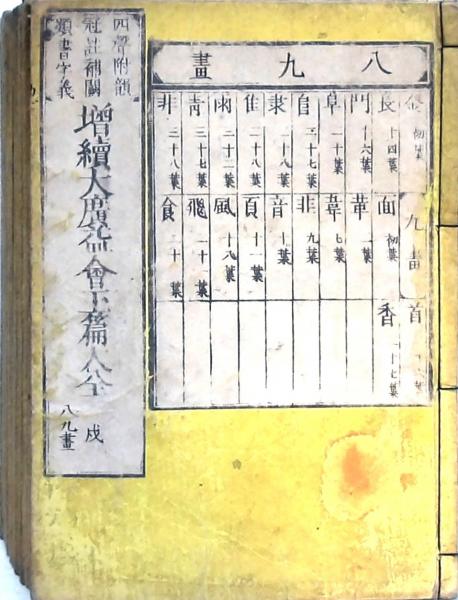 八九畫
金 初葉
長 十四葉
門 十六葉
阜 二十葉
隶 二十八葉
隹 二十八葉
雨 三十二葉
靑 三十七葉
非 三十八葉
九畫
面 初葉
革 一葉
韋 七葉
韭 九葉
音 十葉
頁 十一葉
風 十八葉
飛
食
首
香
四聲附韻
冠註補闕
類書字義
增續大廣益會玉篇大全
戌
八九畫